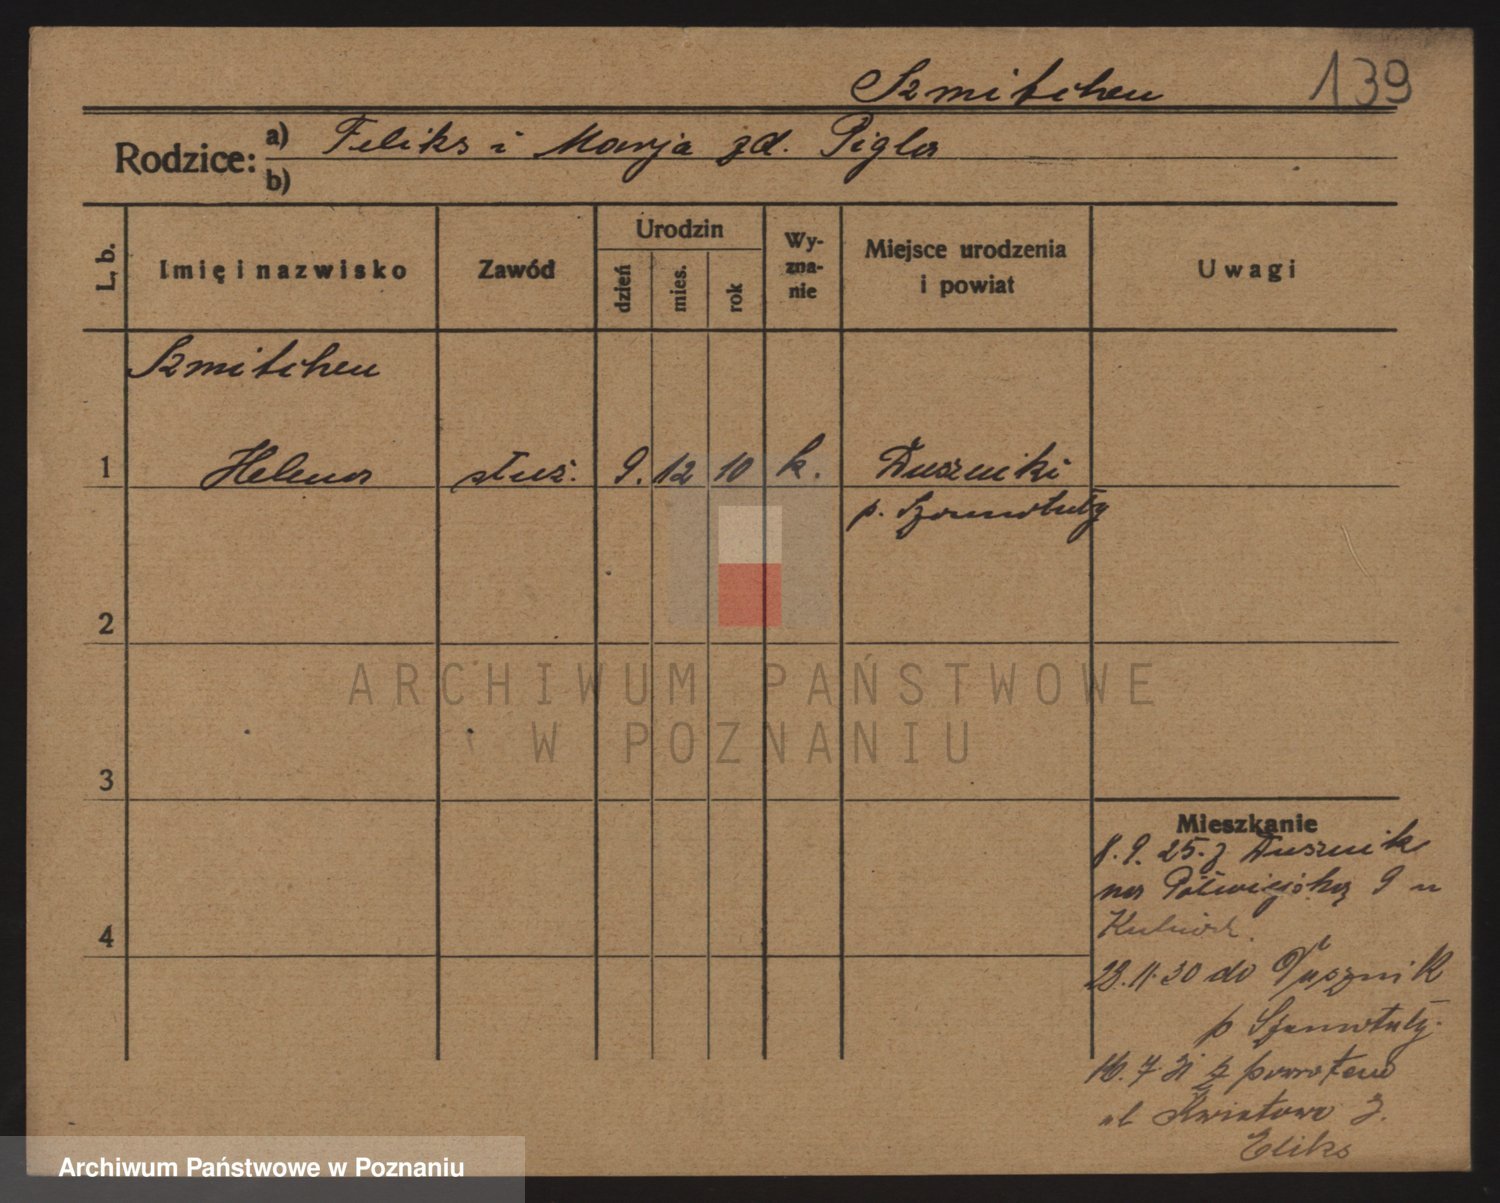 Szmitchen
139
Rodzice: a) Feliks i Marja zd. Pigla
b)
L. b.
Imię i nazwisko
Zawód
Urodzin
dzień
mies.
rok
Wy-
zna-
nie
Miejsce urodzenia
i powiat
Uwagi
Szmitchen
1 Helena służ. 9. 12 10 k. Duszniki
p. Szamotuły
2
3
4
Mieszkanie
8. 9. 25. z Dusznik
na Półwiejską 9 u
28. 11. 30 do Dusznik
p Szamotuły.
16. 7. 31 z powrotem
ul Kwiatowa 3.
ARCHIWUM PAŃSTWOWE
W POZNANIU
Archiwum Państwowe w Poznaniu